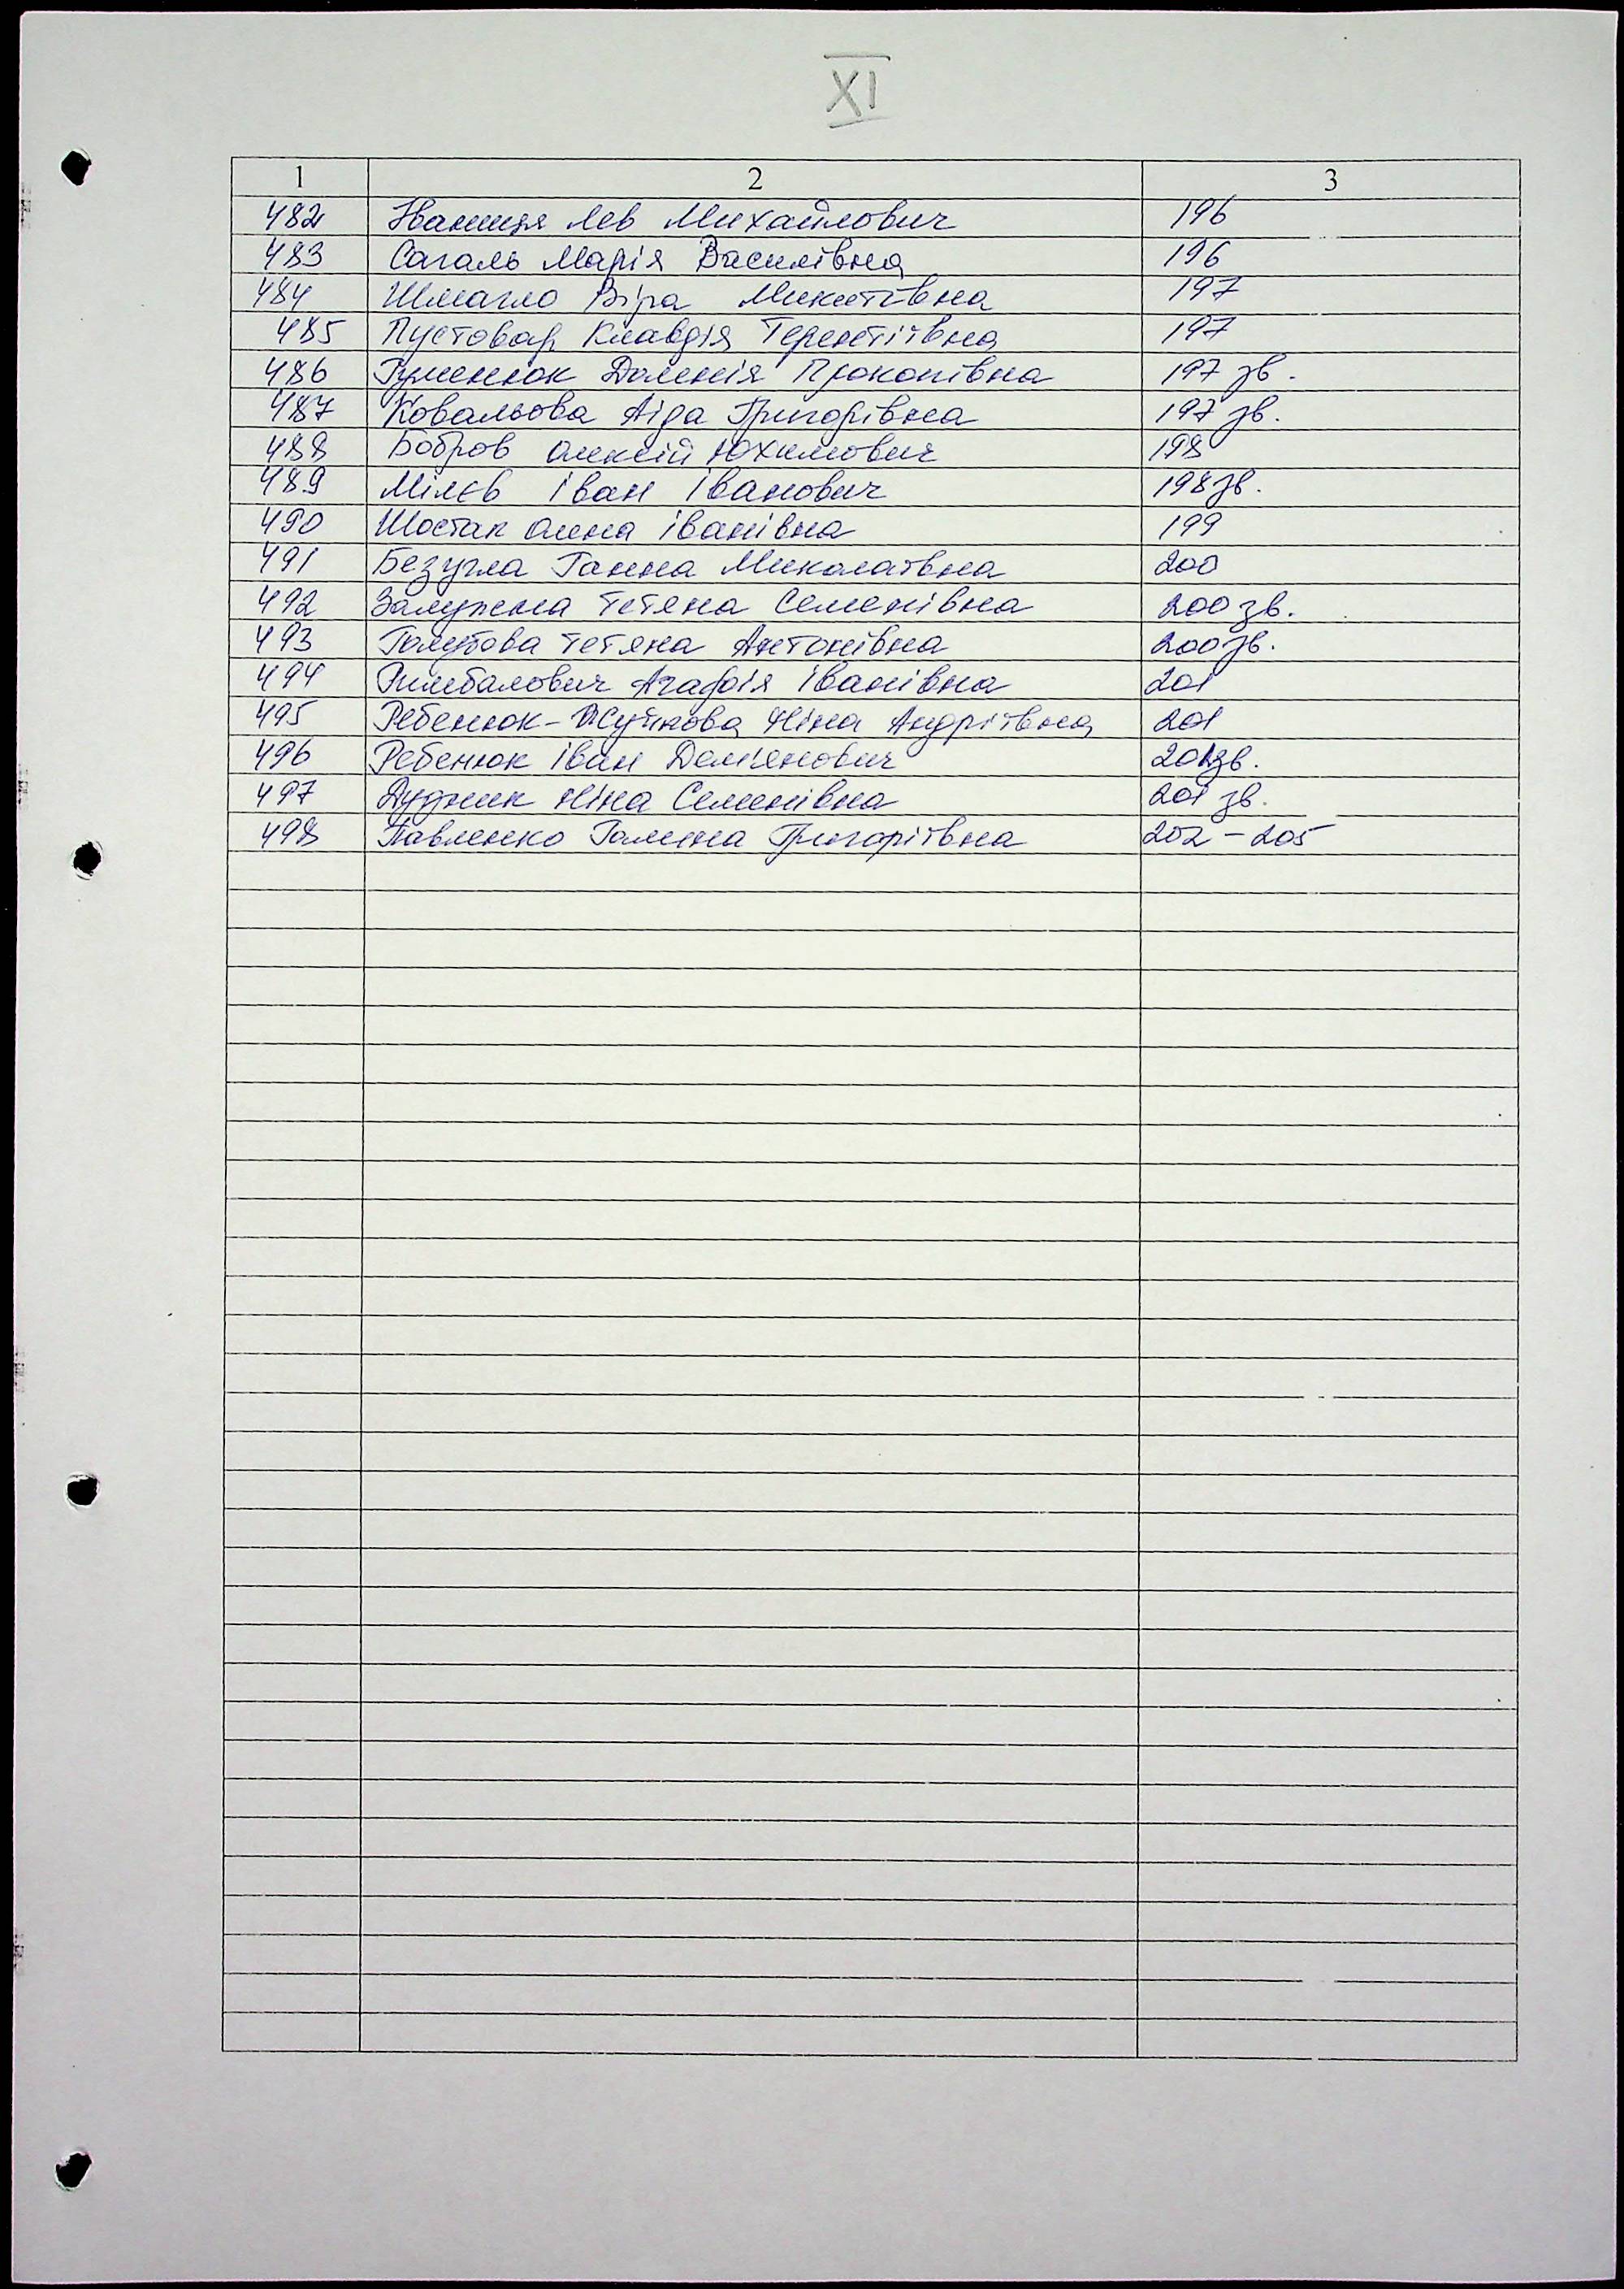 XI
1 2 3
482 Іваниця Лев Михайлович 196
483 Сагаль Марія Василівна 196
484 Шмагло Віра Микитівна 197
485 Пустовар Клавдія Терентіївна 197
486 Гуменюк Доменія Прокопівна 197 зв.
487 Ковальова Аіда Григорівна 197 зв.
488 Бобров Олексій Юхимович 198
489 Мілєв Іван Іванович 198 зв.
490 Шостак Анна Іванівна 199
491 Безугла Ганна Миколаївна 200
492 Залужена Тетяна Семенівна 200 зв.
493 Голубова Тетяна Антонівна 200 зв.
494 Римбалович Агафія Іванівна 201
495 Ребенюк- Нина Андріївна 201
496 Ребенюк Іван Дем'янович 201 зв.
497 Дудник Ніна Семенівна 201 зв.
498 Павленко Галина Григоріївна 202 – 205